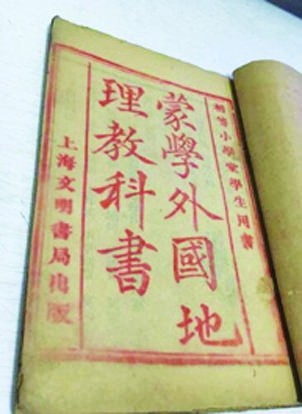 初等小學堂學生用書
蒙學外國地
理教科書
上海文明書局出版